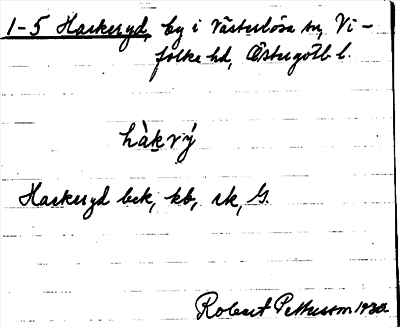 1-5 Hackeryd, by i Västerlösa sn, Vi-
folka hd, Östergötl. l.
hàkrý
Hackeryd bek, kb, rk, G.
Robert Pettersson 1930